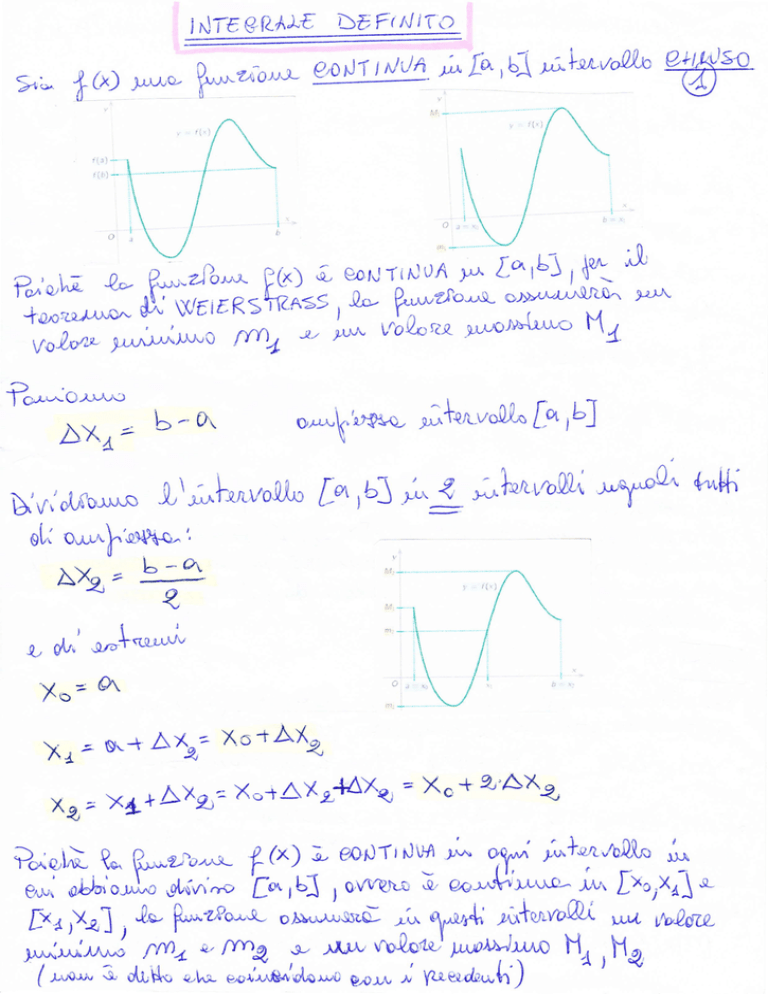 INTEGRALE DEFINITO
Sia f(x) una funzione CONTINUA in [a,b] intervallo CHIUSO
1
y
y = f(x)
f(a)
f(b)
O
a
b
x
y
M₁
y = f(x)
O
a = x₀
b = x₁
x
m₁
Poiché la funzione f(x) è CONTINUA in [a,b], per il
teorema di WEIERSTRASS, la funzione assumerà un
valore minimo m₁ e un valore massimo M₁
Poniamo
Δx₁ = b-a ampiezza intervallo [a,b]
Dividiamo l'intervallo [a,b] in 2 intervalli uguali tutti
di ampiezza:
Δx₂ = b-a
2
y
M₂
y = f(x)
M₁
m₁
O
a = x₀
x₁
b = x₂
x
m₂
e di estremi
x₀ = a
x₁ = a + Δx₂ = x₀ + Δx₂
x₂ = x₁ + Δx₂ = x₀ + Δx₂ + Δx₂ = x₀ + 2·Δx₂
Poiché la funzione f(x) è CONTINUA in ogni intervallo in
cui abbiamo diviso [a,b], ovvero è continua in [x₀,x₁] e
[x₁,x₂], la funzione assumerà in questi intervalli un valore
minimo m₁ e m₂ e un valore massimo M₁, M₂
(non è detto che coincidano con i precedenti)